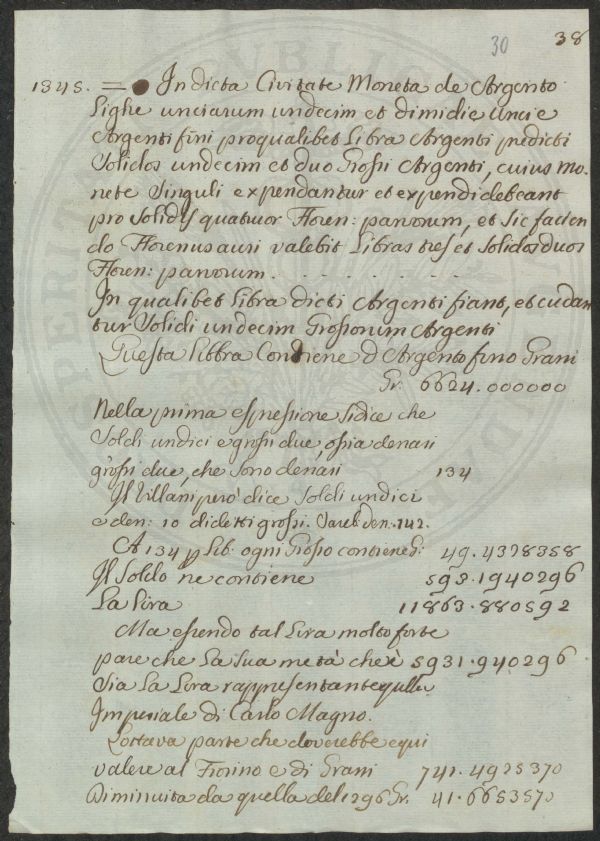 30 38
1345. = In dicta Civitate Moneta de Argento
Lighe unciarum undecim et dimidie uncie
Argenti fini pro qualibet Libra Argenti predicti
Solidos undecim et duo Grossi Argenti, cuius mo-
nete Singuli expendantur et expendi debeant
pro Solidys quatuor Floren: parvorum, et Sic facien
do Florenus auri valebit Libras tres et Solidos duos
Floren: parvorum. . . . . . . .
In qualibet Libra dicti Argenti fiant, et cudan
tur Solidi undecim Grossorum Argenti
Questa Libbra Contiene d'Argento fino Grani
Gr. 6624.000000
Nella prima espressione Si dice che
Soldi undici e grossi due, ossia denari
grossi due, che Sono denari 134
Il Villani però dice Soldi undici
e den: 10 di detti grossi. Sareb. den. 142.
A 134 p Lib: ogni Grosso contiene G: 49.4328358
Il Soldo ne contiene 593.1940296
La Lira 11863.880592
Ma essendo tal Lira molto forte
pare che La Sua metà che è 5931.940296
Sia La Lira rappresentante quella
Imperiale di Carlo Magno.
L'ottava parte che doverebbe equi
valere al Fiorino e di Grani 741.4925370
Diminuita da quella del 1296 Gr. 41.6653570